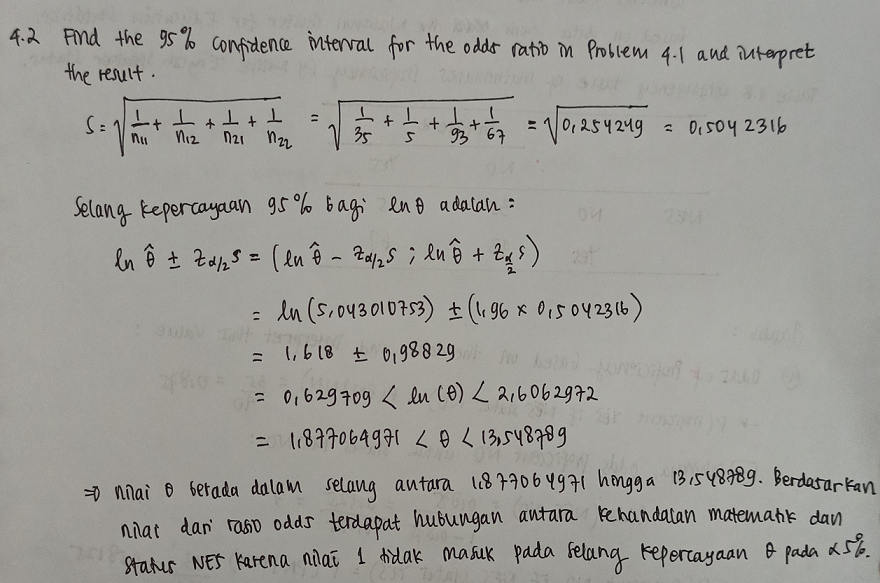 4.2 Find the 95% confidence interval for the odds ratio in Problem 4.1 and interpret
the result.
S = √(1/n₁₁ + 1/n₁₂ + 1/n₂₁ + 1/n₂₂) = √(1/35 + 1/5 + 1/93 + 1/67) = √0,254249 = 0,5042316
Selang kepercayaan 95% bagi ln θ adalah :
ln θ̂ ± Z_α/2 S = (ln θ̂ - Z_α/2 S ; ln θ̂ + Z_α/2 S)
= ln (5,043010753) ± (1,96 × 0,5042316)
= 1,618 ± 0,98829
= 0,629709 < ln (θ) < 2,6062972
= 1,877064971 < θ < 13,548789
⇒ nilai θ berada dalam selang antara 1,877064971 hingga 13,548789. Berdasarkan
nilai dari rasio odds terdapat hubungan antara kehandalan matematik dan
status NES karena nilai 1 tidak masuk pada selang kepercayaan θ pada α 5%.